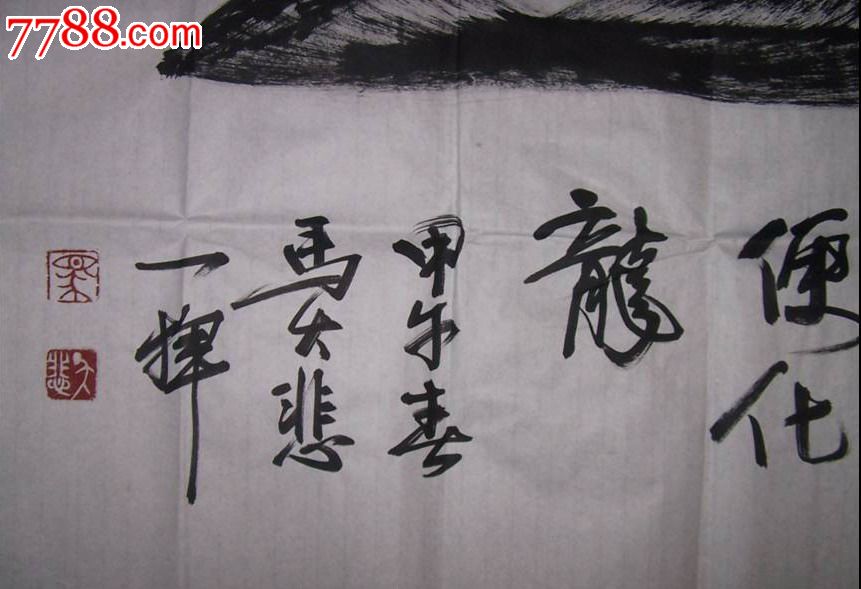 7788.com
便化
龍
甲午春
馬大悲
一揮
大悲